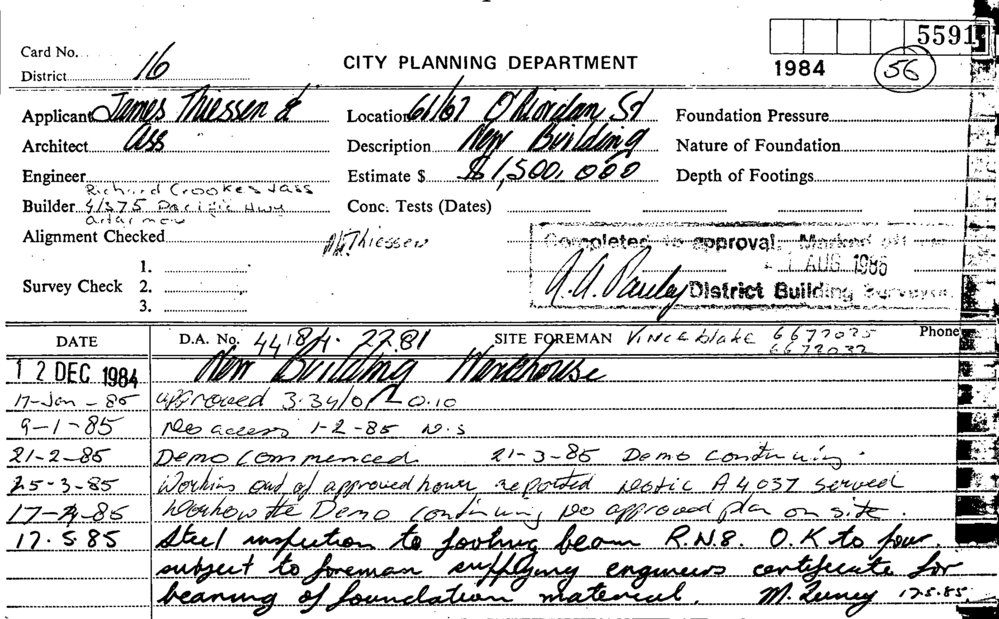 5591
Card No.
District 16
CITY PLANNING DEPARTMENT
1984
56
Applicant James Thiessen &
Location 61/67 O'Riordan St
Foundation Pressure
Architect Ass
Description New Building
Nature of Foundation
Engineer
Estimate $ $1,500,000
Depth of Footings
Richard Crookes & ass
Builder 4/375 Pacific Hwy
artarmon
Conc. Tests (Dates)
Alignment Checked
Thiessen
Completed to approval. Marked off
AUG 1986
A.A. Pauley District Building Surveyor
Survey Check
1.
2.
3.
DATE
D.A. No. 44 84. 2281
SITE FOREMAN Vince blake 6677025
Phone
6672032
12 DEC 1984 New Building Warehouse
17-Jan-85 approved
9-1-85 No access 1-2-85 N.S
21-2-85 Demo commenced 21-3-85 Demo continuing.
25-3-85 Working out of approved hours reported Notic A4037 served
85 Demo continuing No approved plan on site.
17.5.85 Steel inspection to footing beam R.N8. O.K to pour.
subject to foreman supplying engineers certificate for
bearing of foundation material. M. 17.5.85.